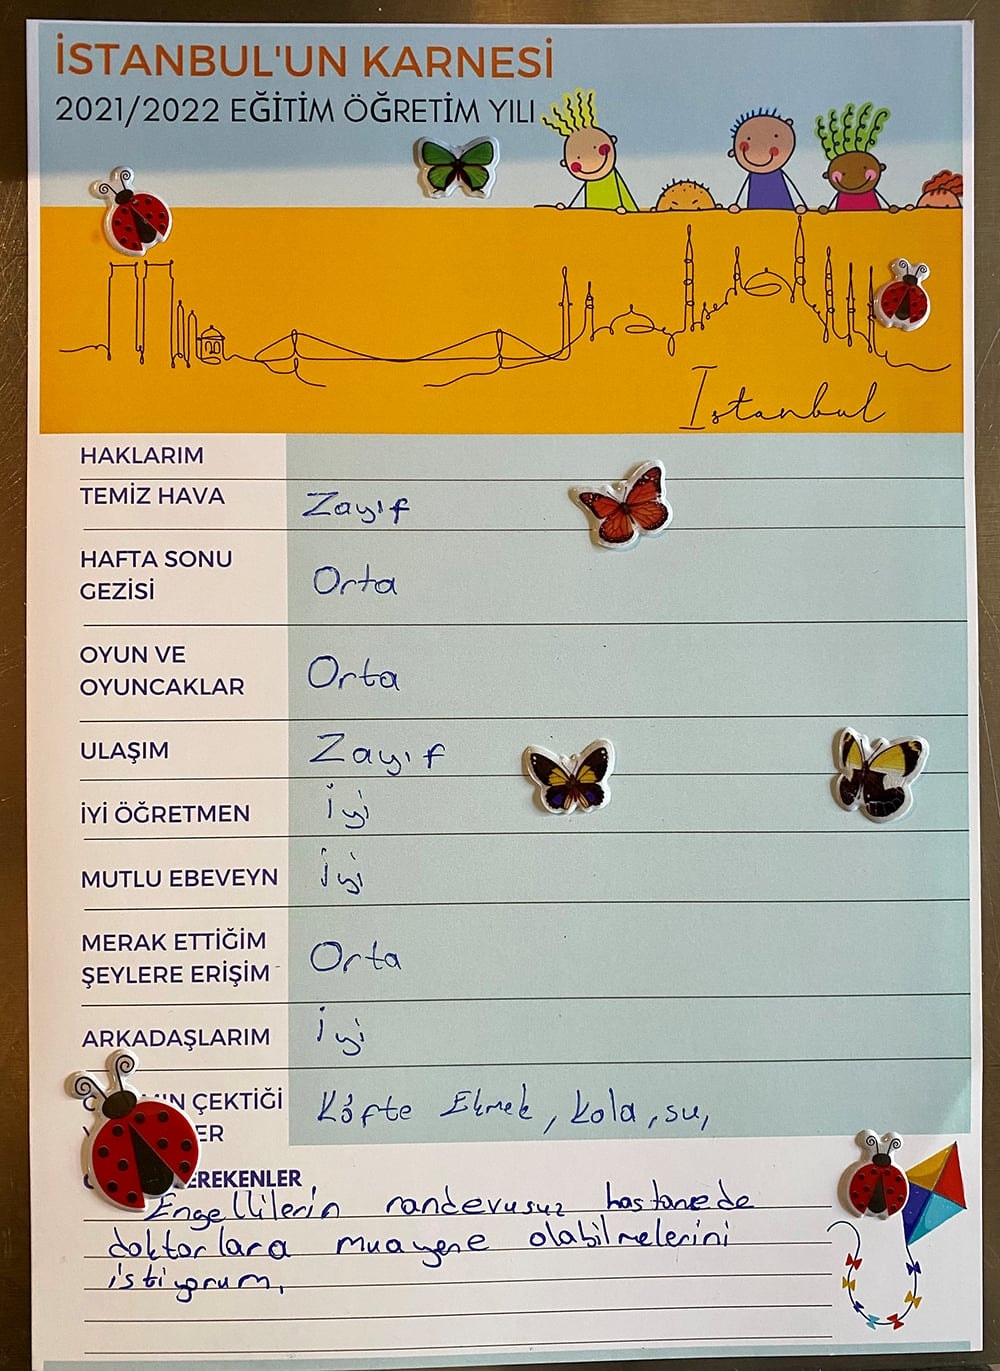 İSTANBUL'UN KARNESİ
2021/2022 EĞİTİM ÖĞRETİM YILI
Istanbul
HAKLARIM
TEMİZ HAVA Zayıf
HAFTA SONU
GEZİSİ Orta
OYUN VE
OYUNCAKLAR Orta
ULAŞIM Zayıf
İYİ ÖĞRETMEN İyi
MUTLU EBEVEYN İyi
MERAK ETTİĞİM
ŞEYLERE ERİŞİM Orta
ARKADAŞLARIM İyi
ÇEKTİĞİ Köfte Ekmek, kola, su,
Engellilerin randevusuz hastanede
doktorlara muayene olabilmelerini
istiyorum.